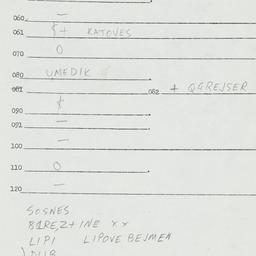 060 —
061 {+ KATOVES
070 O
080 UMEDIK
081 082 + QGREJSER
090 ¢
091 —
100 —
110 O
120 —
SOSNES
BIRE,Z+INE xx
LIPI LIPOVE BEJMEA
) DUB